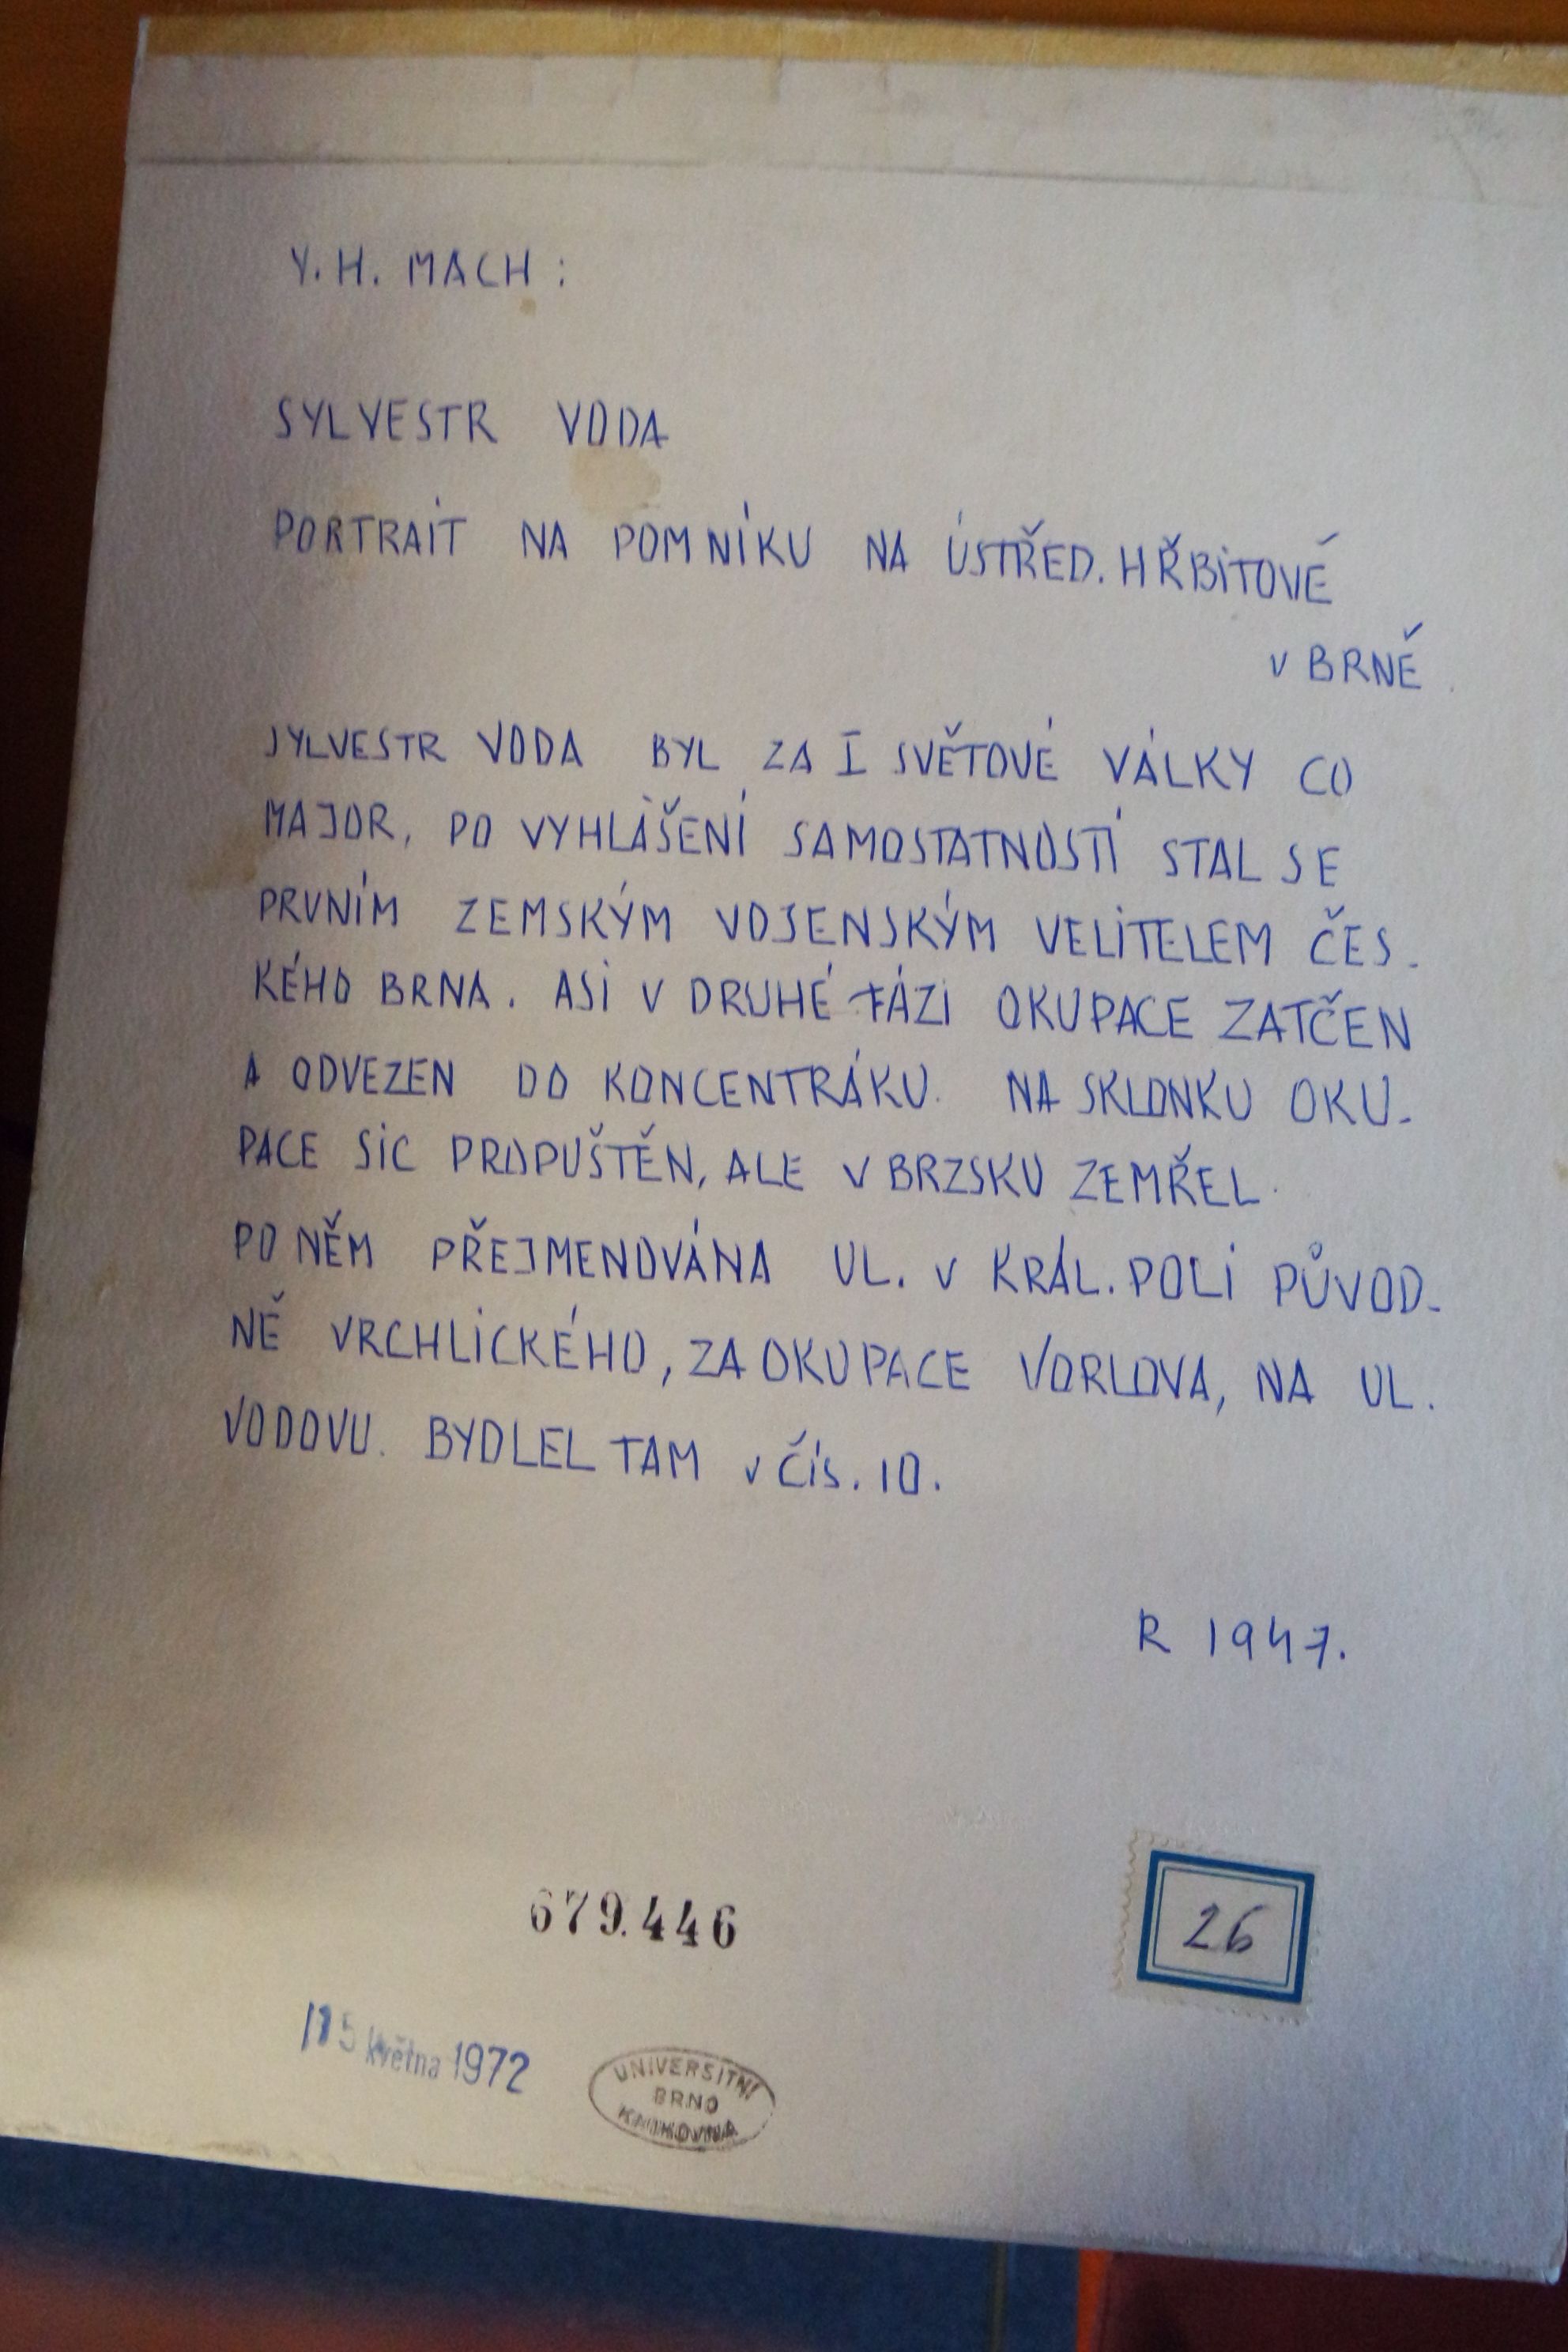 V. H. MACH :
SYLVESTR VODA
PORTRAIT NA POMNÍKU NA ÚSTŘED. HŘBITOVĚ
V BRNĚ
SYLVESTR VODA BYL ZA I SVĚTOVÉ VÁLKY CO
MAJOR, PO VYHLÁŠENÍ SAMOSTATNOSTÍ STAL SE
PRVNÍM ZEMSKÝM VOJENSKÝM VELITELEM ČES-
KÉHO BRNA. ASI V DRUHÉ FÁZI OKUPACE ZATČEN
A ODVEZEN DO KONCENTRÁKU. NA SKLONKU OKU-
PACE SIC PROPUŠTĚN, ALE V BRZSKU ZEMŘEL.
PO NĚM PŘEJMENOVÁNA UL. V KRÁL. POLI PŮVOD-
NĚ VRCHLICKÉHO, ZA OKUPACE VORLOVA, NA UL.
VODOVU. BYDLEL TAM V ČÍS. 10.
R 1947.
679.446
26
15 května 1972
UNIVERSITNÍ
BRNO
KNIHOVNA